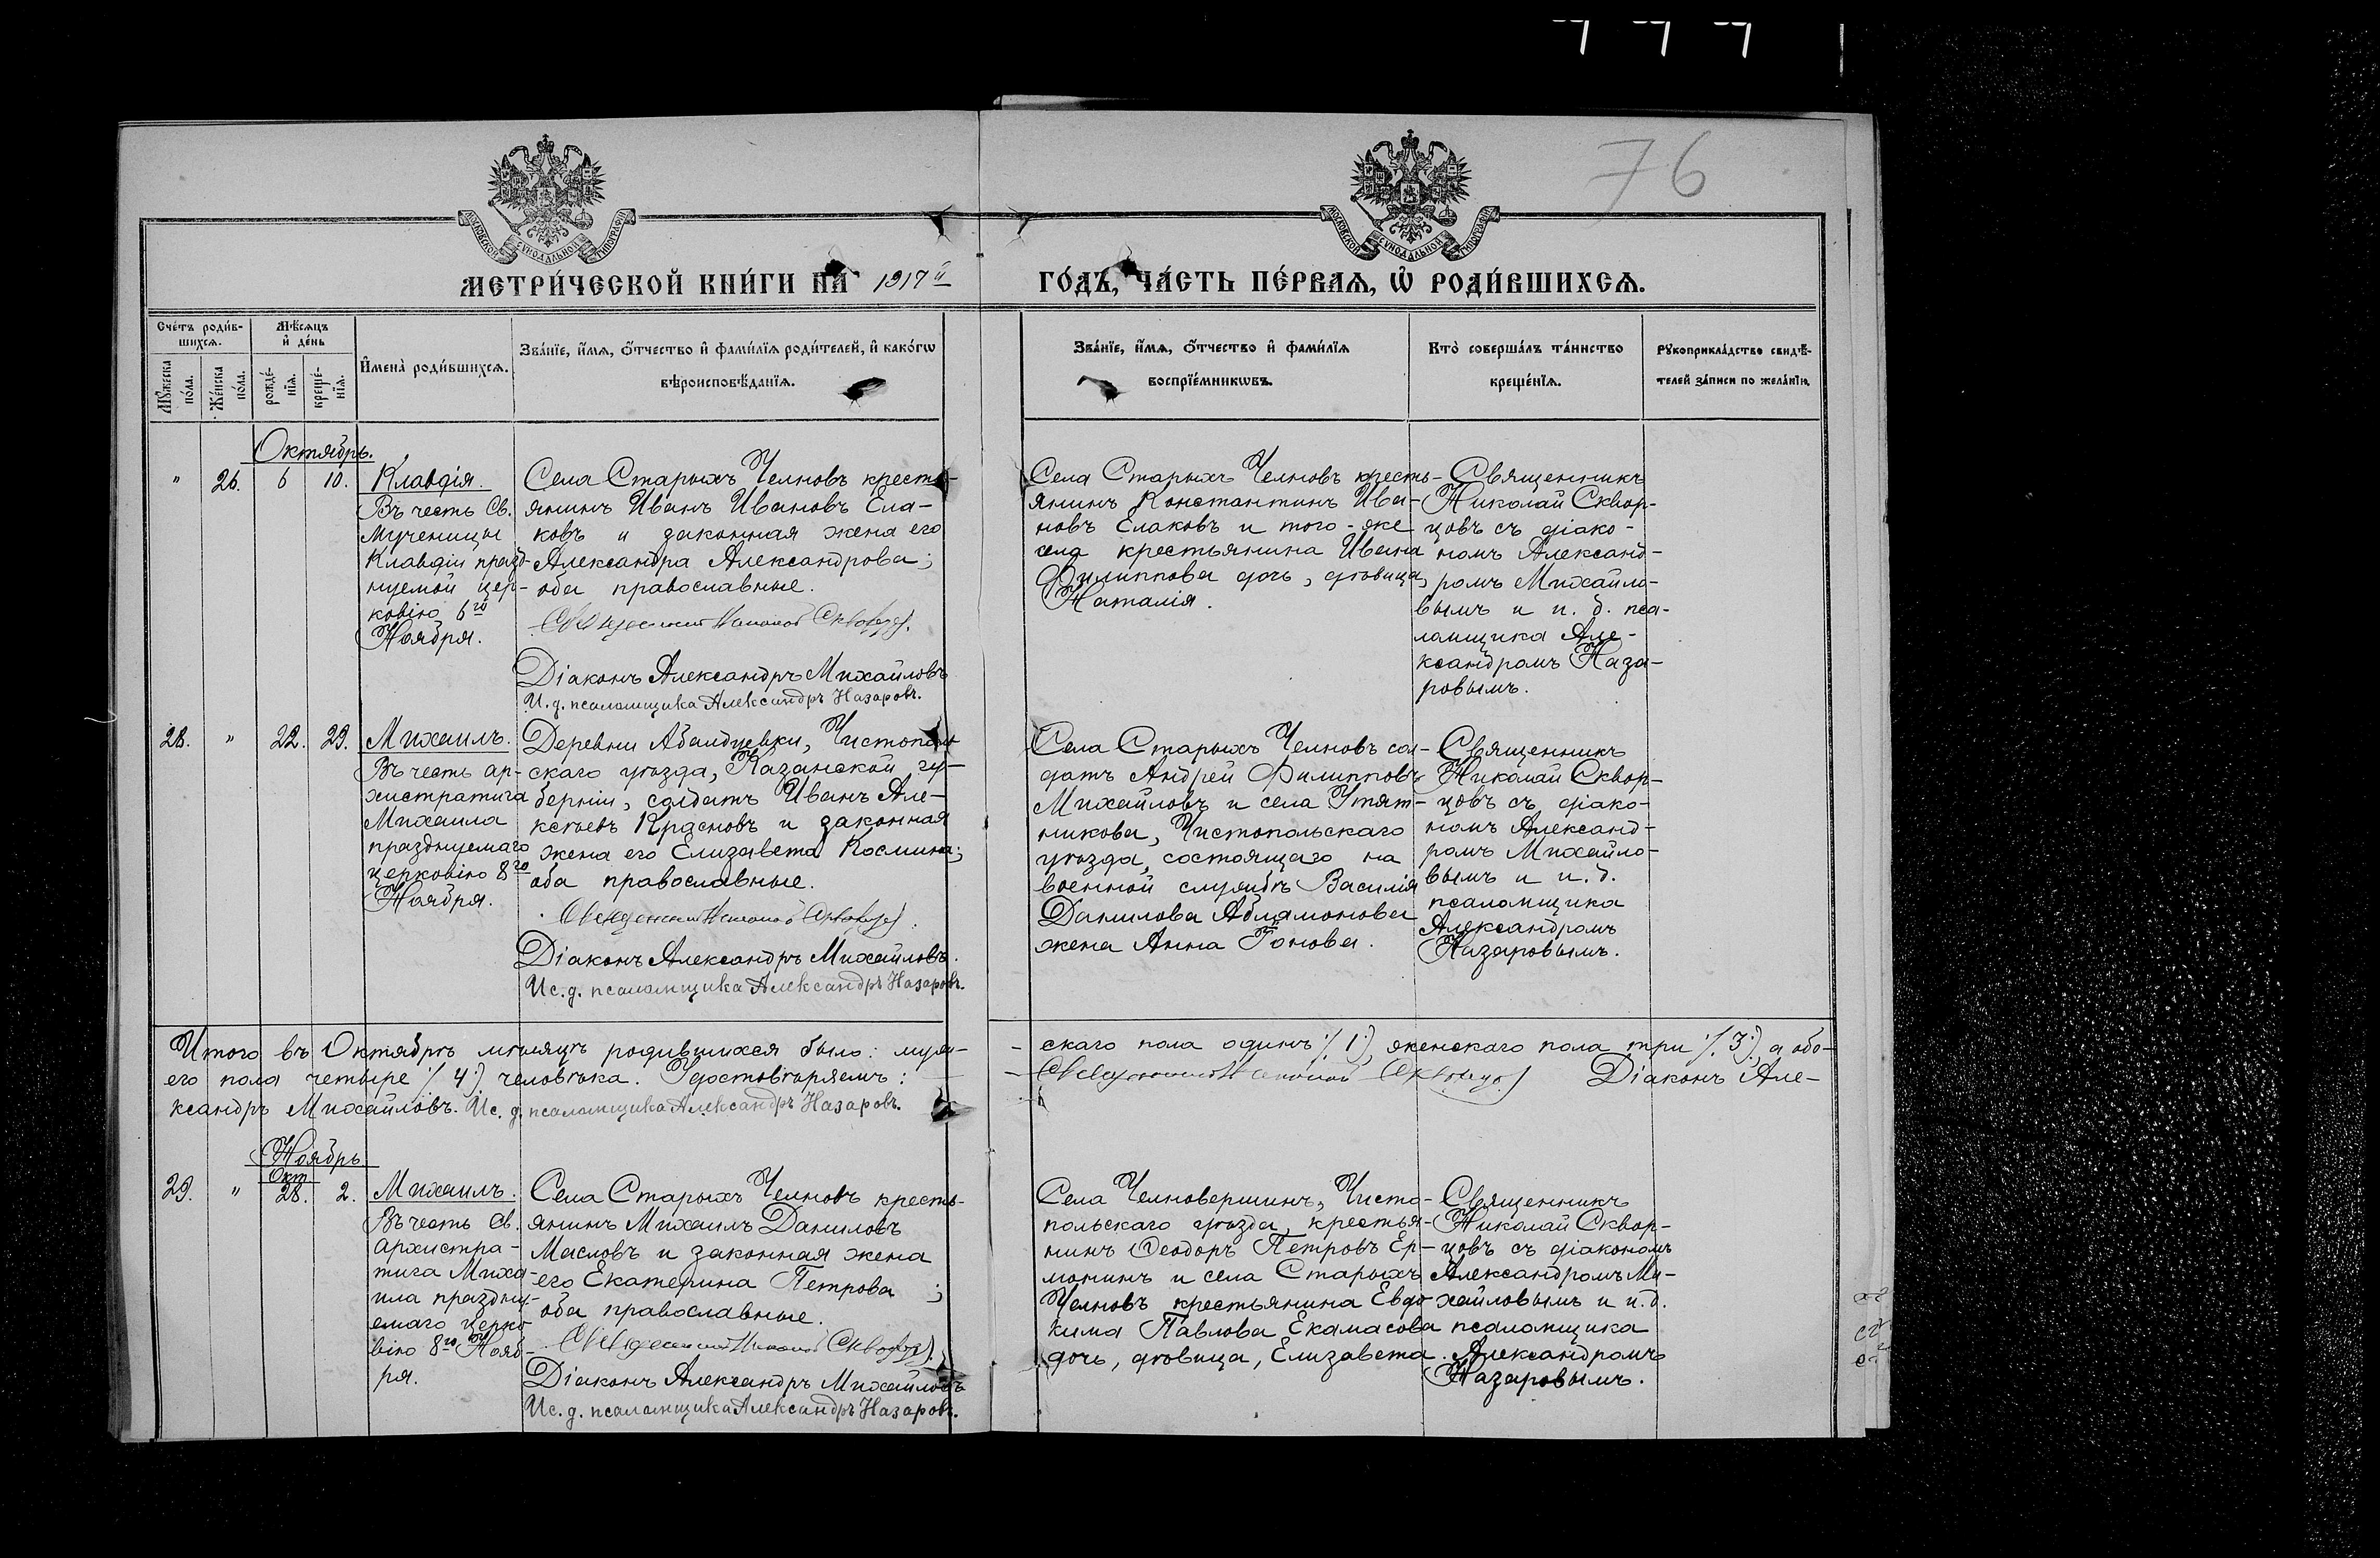 76
МОСКОВСКОЙ СѴНОДАЛЬНОЙ ТИПОГРАФІИ
МОСКОВСКОЙ СѴНОДАЛЬНОЙ ТИПОГРАФІИ
МЕТРИ́ЧЕСКОЙ КНИ́ГИ НА 1917й ГО́ДЪ, ЧА́СТЬ ПЕ́РВАѦ, Ѡ҆ РОДИ́ВШИХСѦ.
Сче́тъ роди́в-
шихсѧ.
Мꙋ́жеска
по́ла.
Же́нска
по́ла.
Мѣ́сѧцъ
и҆ де́нь
рожде́-
нїѧ.
креще́-
нїѧ.
И҆мена̀ роди́вшихсѧ.
Зва́нїе, и҆́мѧ, ѻ҆́тчество и҆ фами́лїѧ роди́телей, и҆ како́гѡ
вѣроисповѣ́данїѧ.
Зва́нїе, и҆́мѧ, ѻ҆́тчество и҆ фами́лїѧ
воспрїе́мникѡвъ.
Кто̀ соверша́лъ та́инство
креще́нїѧ.
Рꙋкоприкла́дство свидѣ́-
телей за́писи по жела́нїю.
Октябрь.
" 26. 6 10.
Клавдія.
Въ честь Св.
Мученицы
Клавдіи празд-
нуемой цер-
ковію 6го
Ноября.
Села Старыхъ Челновъ кресть-
янинъ Иванъ Ивановъ Ела-
ковъ и законная жена его
Александра Александрова;
оба православные.
Священникъ Николай Скворцовъ.
Діаконъ Александръ Михайловъ
И. д. псаломщика Александръ Назаровъ.
Села Старыхъ Челновъ кресть-
янинъ Константинъ Ива-
новъ Елаковъ и того-же
села крестьянина Ивана
Филиппова дочь, дѣвица,
Наталія.
Священникъ
Николай Сквор-
цовъ съ діако-
номъ Александ-
ромъ Михайло-
вымъ и и. д. пса-
ломщика Але-
ксандромъ Наза-
ровымъ.
28. " 22. 29.
Михаилъ.
Въ честь ар-
хистратига
Михаила
празднуемаго
церковію 8го
Ноября.
Деревни Абалдуевки, Чистополь-
скаго уѣзда, Казанской гу-
берніи, солдатъ Иванъ Але-
ксѣевъ Красновъ и законная
жена его Елизавета Космина;
оба православные.
Священникъ Николай Скворцовъ.
Діаконъ Александръ Михайловъ.
Ис. д. псаломщика Александръ Назаровъ.
Села Старыхъ Челновъ сол-
датъ Андрей Филипповъ
Михайловъ и села Утят-
никова, Чистопольскаго
уѣзда, состоящаго на
военной службѣ Василія
Данилова Абламонова
жена Анна Гонова.
Священникъ
Николай Сквор-
цовъ съ діако-
номъ Александ-
ромъ Михайло-
вымъ и и. д.
псаломщика
Александромъ
Назаровымъ.
Итого въ Октябрѣ мѣсяцѣ родившихся было: муж-
скаго пола одинъ /. 1 :/, женскаго пола три /. 3 :/, а обо-
его пола четыре /. 4 :/ человѣка. Удостовѣряемъ:
Священникъ Николай Скворцовъ Діаконъ Але-
ксандръ Михайловъ. Ис. д. псаломщика Александръ Назаровъ.
Ноябрь
Окт
29. " 28. 2.
Михаилъ.
Въ честь Св.
Архистра-
тига Миха-
ила праздну-
емаго церко-
вію 8го Нояб-
ря.
Села Старыхъ Челновъ кресть-
янинъ Михаилъ Даниловъ
Масловъ и законная жена
его Екатерина Петрова;
оба православные.
Священникъ Николай Скворцовъ.
Діаконъ Александръ Михайловъ
Ис. д. псаломщика Александръ Назаровъ.
Села Челновершинъ, Чисто-
польскаго уѣзда, крестья-
нинъ Ѳеодоръ Петровъ Ер-
монинъ и села Старыхъ
Челновъ крестьянина Евдо-
кима Павлова Екамасова
дочь, дѣвица, Елизавета.
Священникъ
Николай Сквор-
цовъ съ діакономъ
Александромъ Ми-
хайловымъ и и. д.
псаломщика
Александромъ
Назаровымъ.